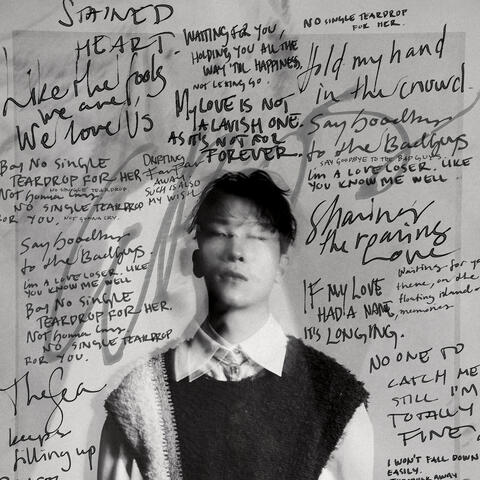 STAINED
HEART.
Like the fools
we are,
We love Us
Boy No Single
TEARDROP FOR HER.
NO SINGLE TEARDROP
Not Gonna Cry.
NO SINGLE TEARDROP
FOR YOU. NOT GONNA CRY.
Say Goodbye
to the BadGuys.
I'm A LOVE LOSER. LIKE
YOU KNOW ME WELL
Boy No Single
TEARDROP FOR HER.
Not Gonna Cry
NO SINGLE TEARDROP
FOR YOU.
The Sea
keeps
filling up
WAITING FOR YOU,
HOLDING YOU ALL THE
WAY 'TIL HAPPINESS.
NOT LETTING GO.
My LOVE IS NOT
A LAVISH ONE.
AS IT'S NOT FOR
FOREVER.
DRIFTING
Far Far
AWAY
SUCH IS ALSO
MY WISH.
NO SINGLE TEARDROP
FOR HER.
Hold my hand
in the crowd.
Say Goodbye
to the BadGuys
SAY GOODBYE TO THE BAD GUYS
I'm A LOVE LOSER. LIKE
YOU KNOW ME WELL
Sharing
the roaring
Love
IF MY LOVE
HAD A NAME,
IT'S LONGING.
Waiting for yo
there, on the
floating island of
memories
NO ONE TO
CATCH ME
STILL I'M
TOTALLY
FINE
I WON'T FALL DOWN
EASILY.